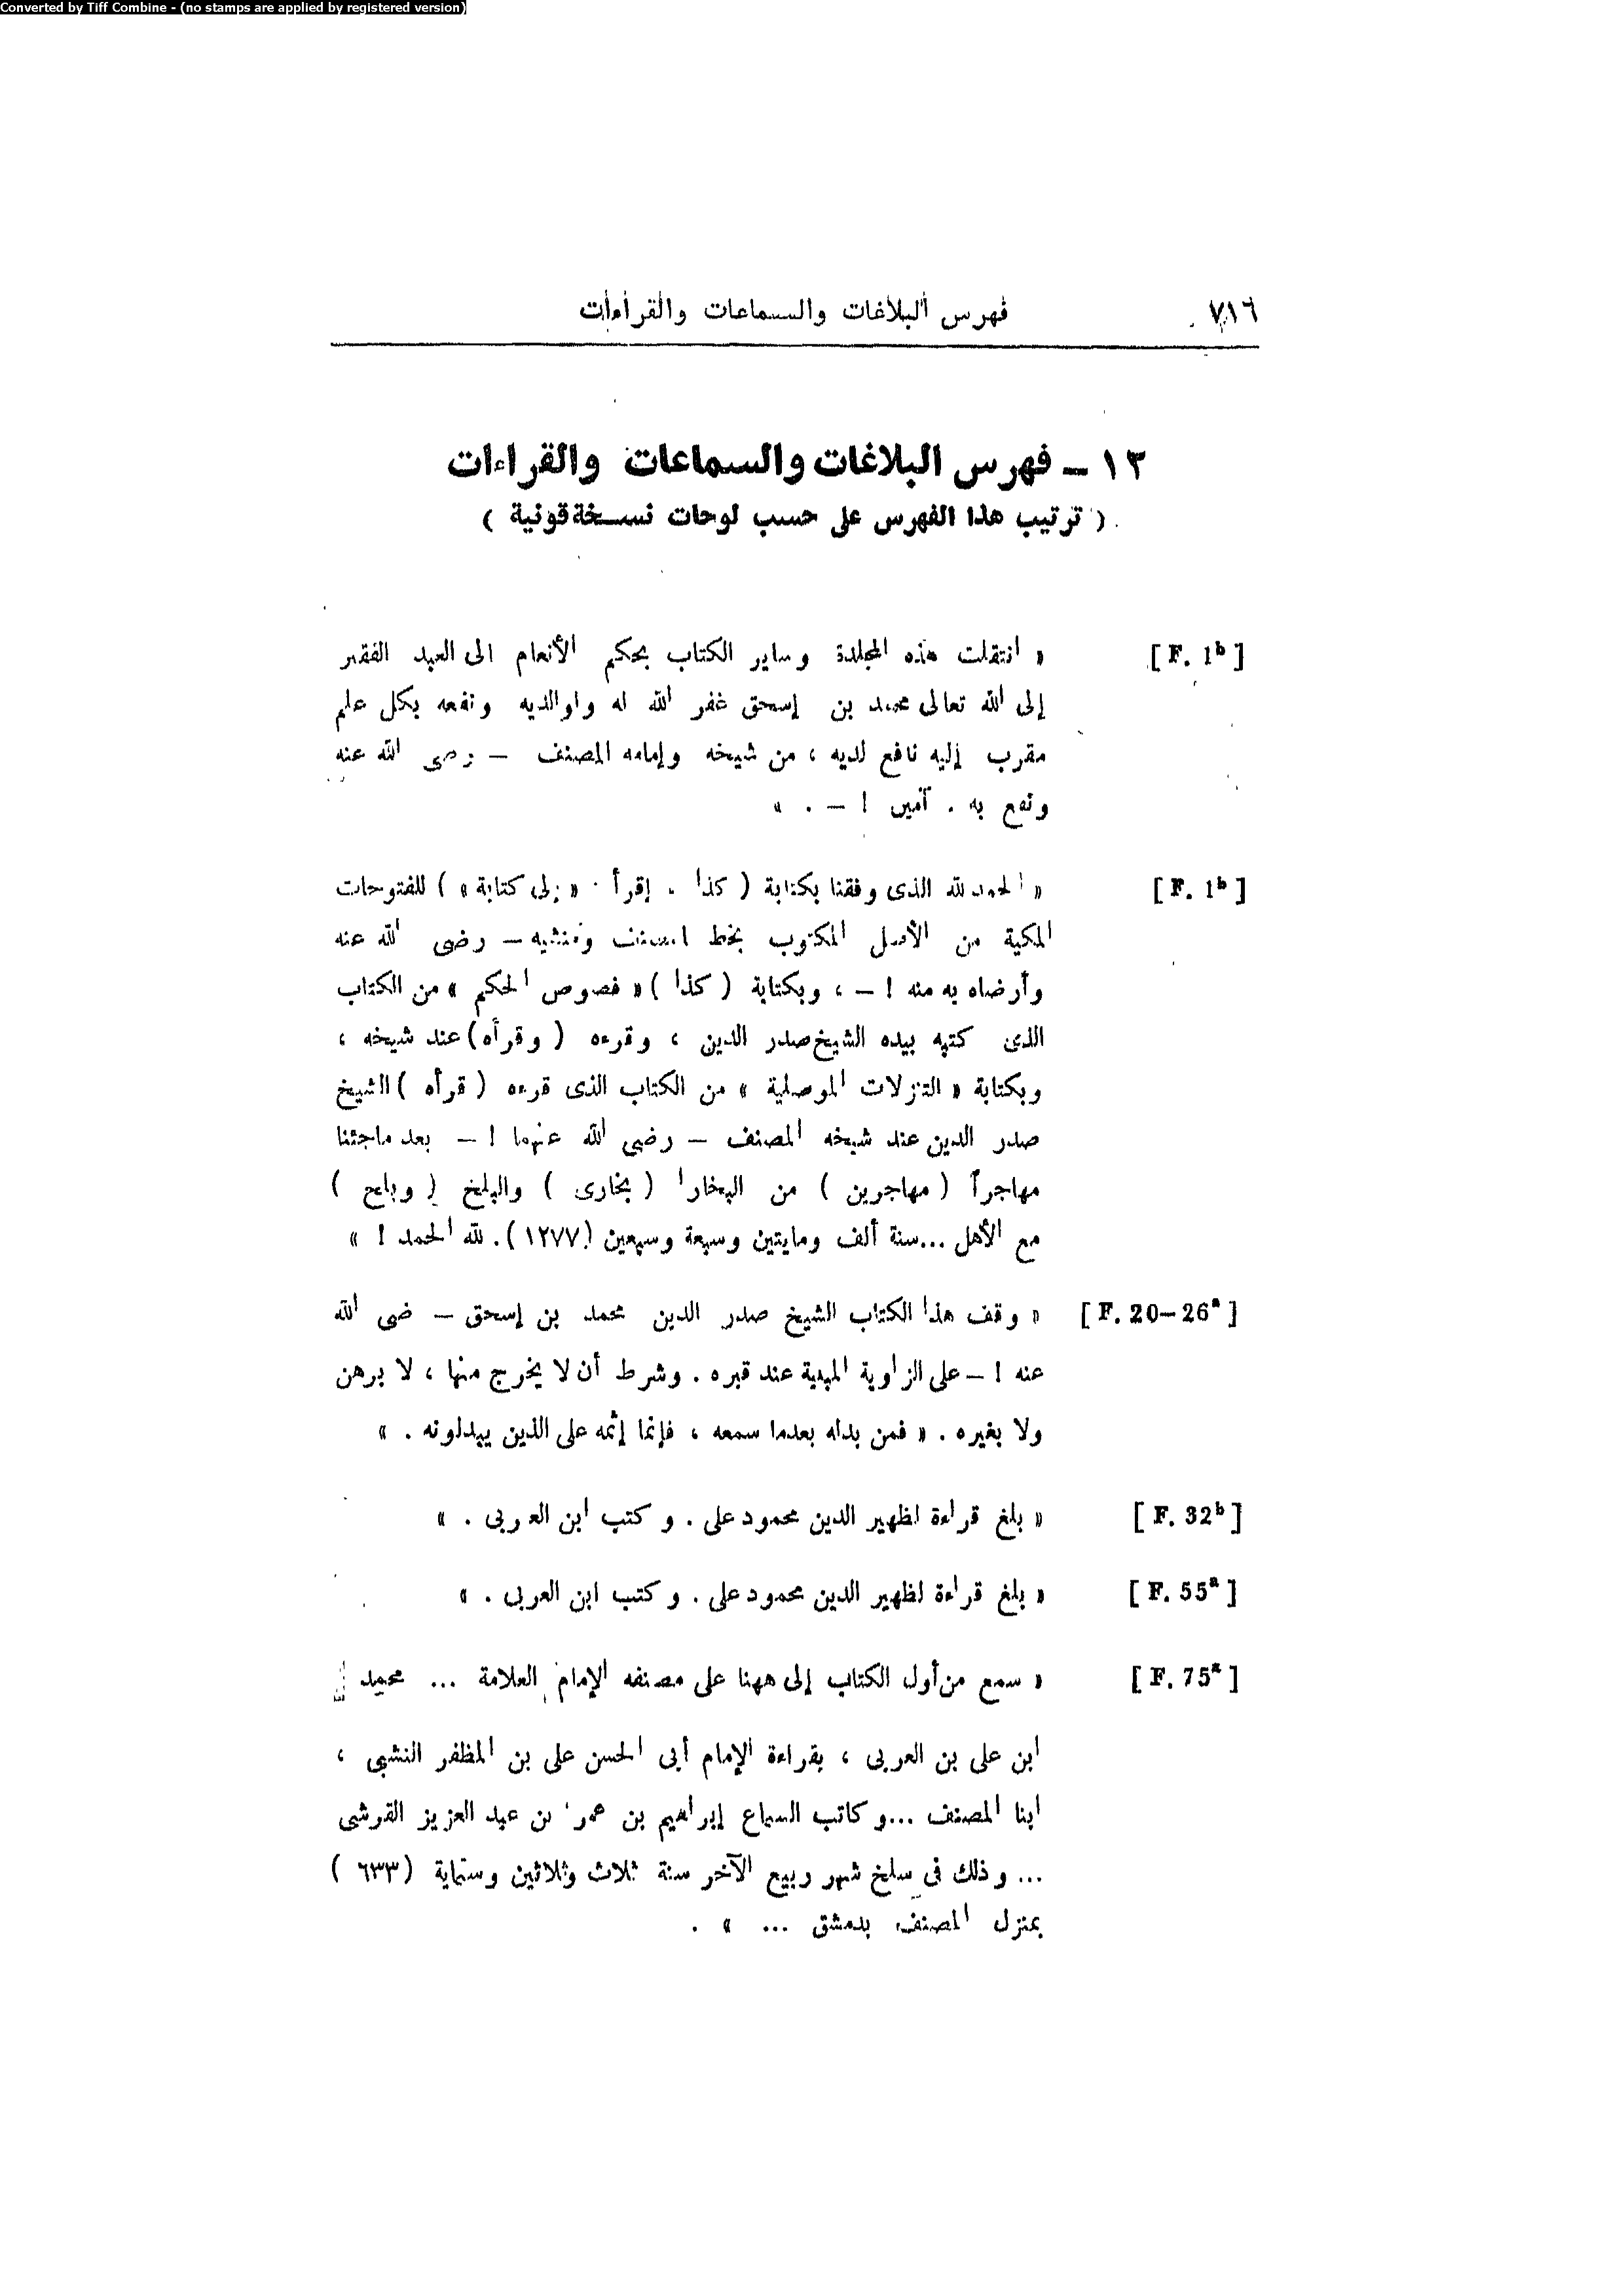 Converted by Tiff Combine - (no stamps are applied by registered version)
٧١٦ فهرس البلاغات والسماعات والقراءات
١٣ – فهرس البلاغات والسماعات والقراءات
( ترتيب هذا الفهرس على حسب لوحات نسخة قونية )
[ F. 1b ] « انتقلت هذه المجلدة وساير الكتاب بحكم الأنعام الى العبد الفقير
إلى الله تعالى محمد بن إسحق غفر الله له ولوالديه ونفعه بكل علم
مقرب إليه نافع لديه ، من شيخه وإمامه المصنف – رضى الله عنه
ونفع به . آمين ! – . »
[ F. 1b ] « الحمد لله الذى وفقنا بكتابة ( كذا . إقرأ : « إلى كتابة » ) للفتوحات
المكية من الأصل المكتوب بخط المصنف ومنشيه – رضى الله عنه
وأرضاه به منه ! – ، وبكتابة ( كذا ) « فصوص الحكم » من الكتاب
الذى كتبه بيده الشيخ صدر الدين ، وقرءه ( وقرأه ) عند شيخه ،
وبكتابة « التنزلات الموصلية » من الكتاب الذى قرءه ( قرأه ) الشيخ
صدر الدين عند شيخه المصنف – رضى الله عنهما ! – بعد ماجئنا
مهاجراً ( مهاجرين ) من البخارا ( بخارى ) والبلخ ( وبلخ )
مع الأهل ... سنة ألف ومايتين وسبعة وسبعين ( ١٢٧٧ ) . لله الحمد ! »
[ F. 20–26a ] « وقف هذا الكتاب الشيخ صدر الدين محمد بن إسحق – ضى الله
عنه ! – على الزاوية المبنية عند قبره . وشرط أن لا يخرج منها ، لا برهن
ولا بغيره . « فمن بدله بعدما سمعه ، فإنما إثمه على الذين يبدلونه . »
[ F. 32b ] « بلغ قراءة لظهير الدين محمود على . وكتب ابن العربى . »
[ F. 55a ] « بلغ قراءة لظهير الدين محمود على . وكتب ابن العربى . »
[ F. 75a ] « سمع من أول الكتاب إلى ههنا على مصنفه الإمام العلامة ... محمد
ابن على بن العربى ، بقراءة الإمام أبى الحسن على بن المظفر النشبى ،
ابنا المصنف ... وكاتب السماع إبراهيم بن عمر بن عبد العزيز القرشى
... وذلك فى سلخ شهر ربيع الآخر سنة ثلاث وثلاثين وستماية ( ٦٣٣ )
بمنزل المصنف بدمشق ... » .